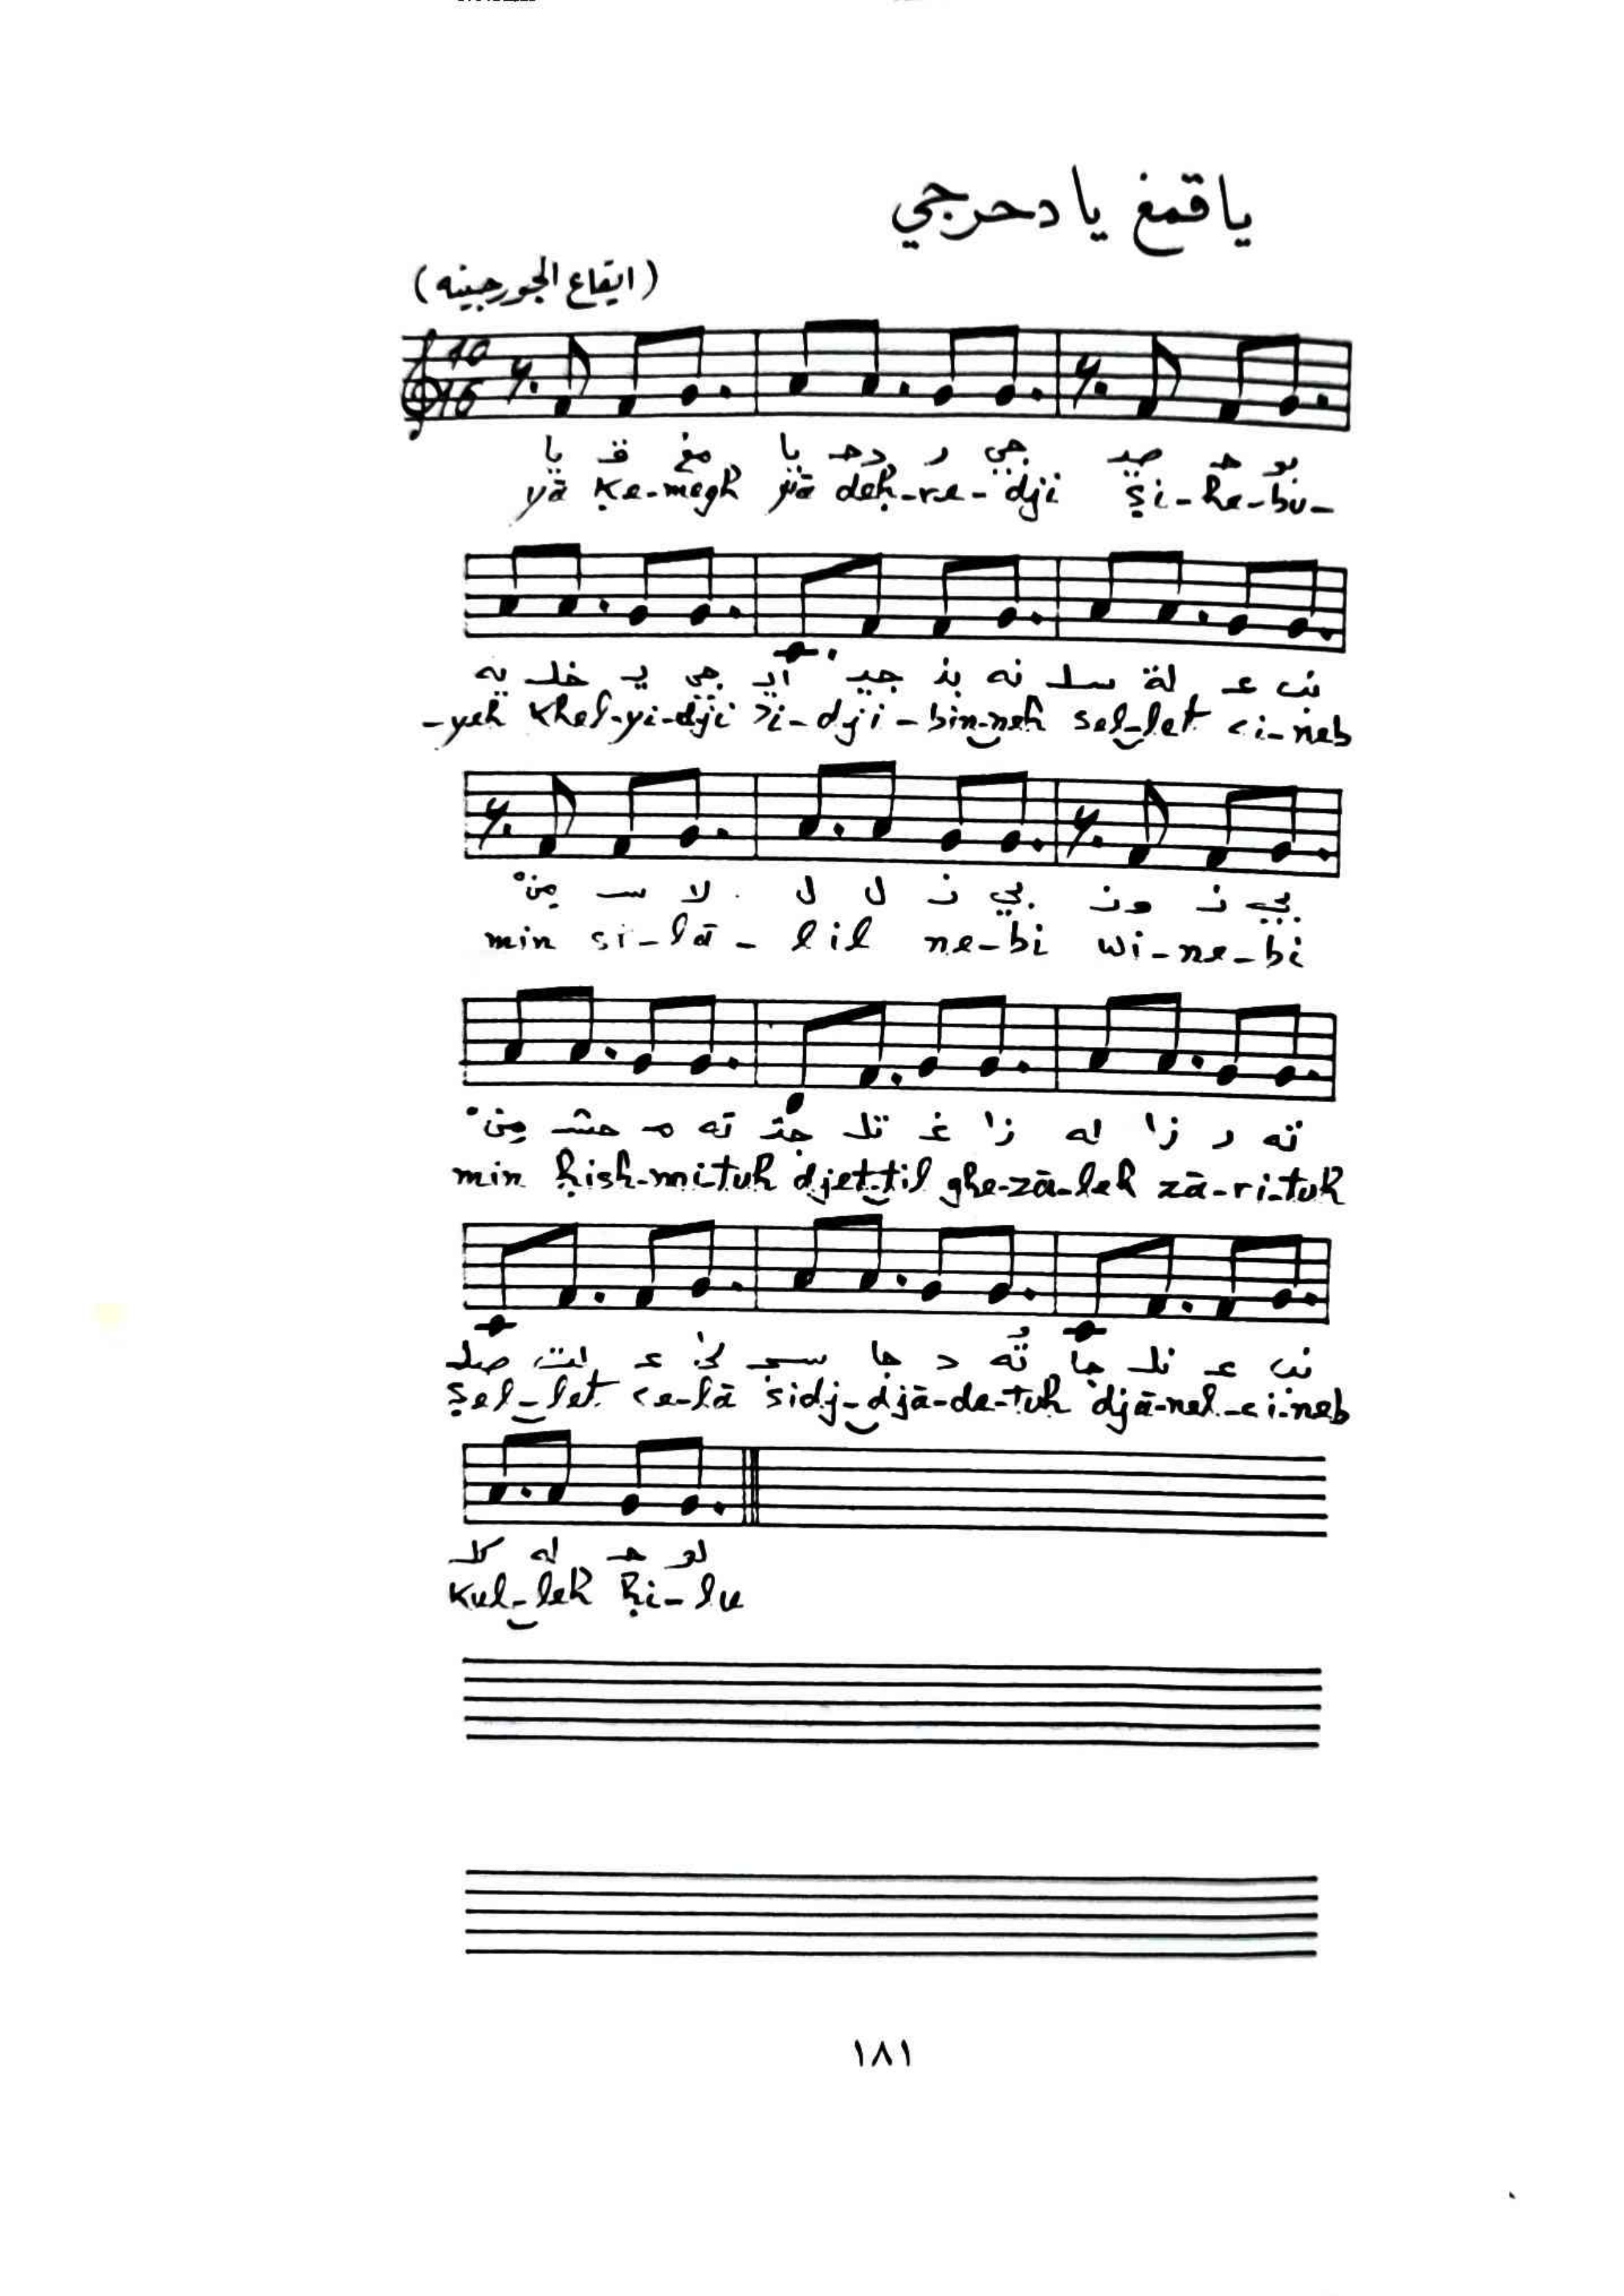 ياقمغ يا دحرجي
(ايقاع الجورجينه)
10
16
يا ق مغ يا دحـ ر جي صيـ حـ بو
yā ḳe-megh yā deḥ-re-dji ṣi-ḥe-bu-
يه خلـ يـ جي ايـ جيـ بنـ نه سلـ لة عـ نب
-yeh khel-yi-dji ›i-dji-bin-neh sel-let ‹i-neb
مِنْ سـ لا ل ل نـ بي ونـ نـ بي
min si-lā-lil ne-bi wi-ne-bi
مِنْ حشـ مـ ته جتـ تلـ غـ زا له زا ر ته
min ḥish-mituh djet-til ghe-zā-leh zā-ri-tuh
صلـ لت عـ لى سجـ جا د تُه جا نلـ عـ نب
ṣel-let ‹e-lā sidj-djā-de-tuh djā-nel-‹i-neb
كلـ له حـ لو
kul-leh ḥi-lu
١٨١